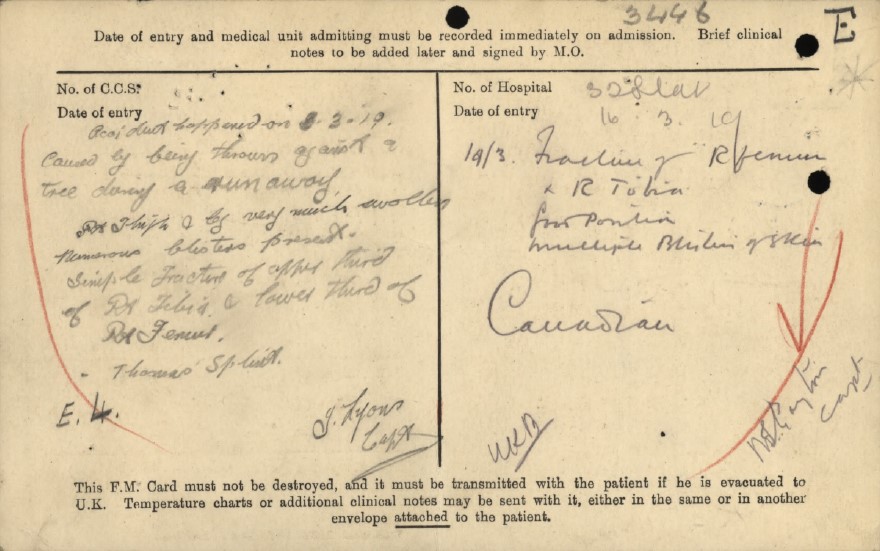 3446
E
Date of entry and medical unit admitting must be recorded immediately on admission. Brief clinical
notes to be added later and signed by M.O.
No. of C.C.S.
Date of entry
happened on 3-3-19.
Caused by being thrown against a
tree during a runaway
Rt Thigh & leg very much swollen
numerous blisters present.
Simple Fracture of upper third
of Rt Tibia & lower third of
Rt Femur.
- Thomas' Splint.
E.4.
J. Lyons
Capt
No. of Hospital
Date of entry
16.3.19
19/3. Fracture of R femur
& R Tibia
Position
multiple Blisters of Skin
Canadian
Capt
This F.M. Card must not be destroyed, and it must be transmitted with the patient if he is evacuated to
U.K. Temperature charts or additional clinical notes may be sent with it, either in the same or in another
envelope attached to the patient.